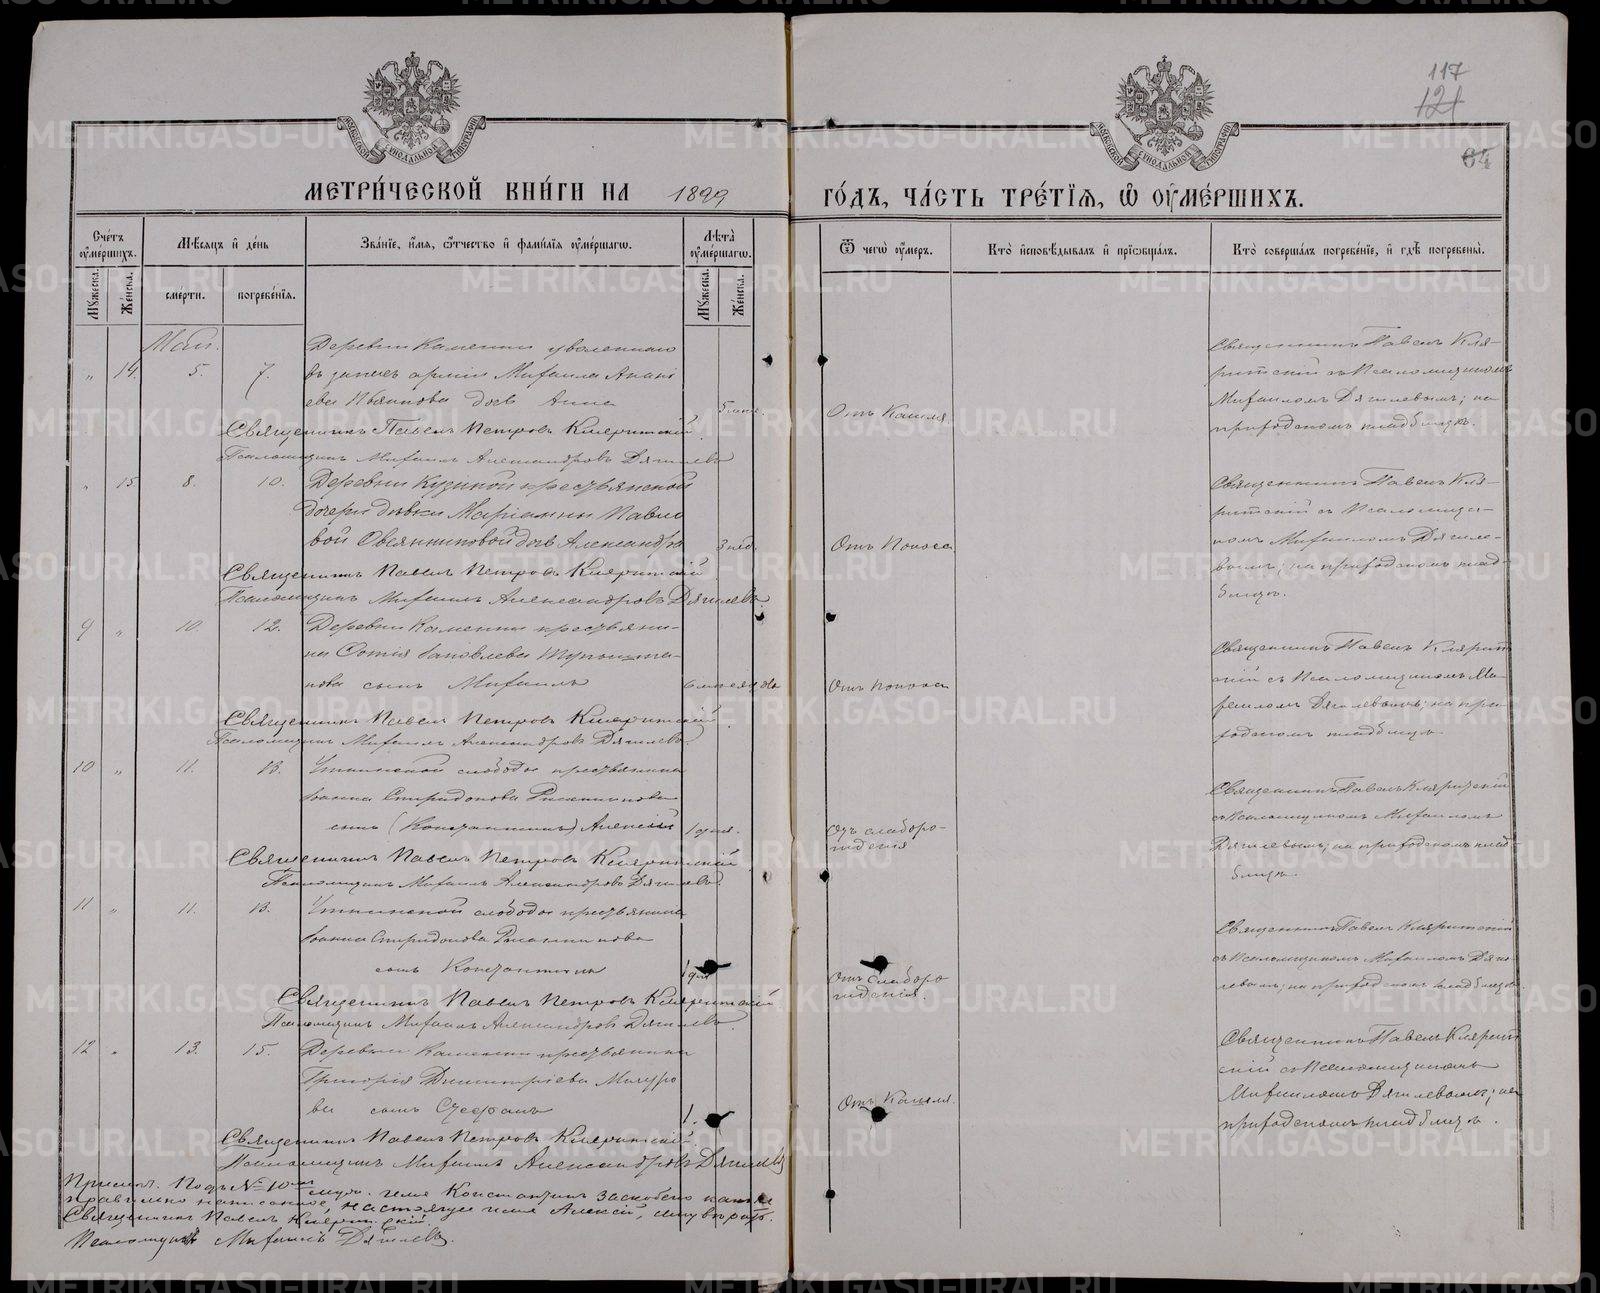 117
121
64
МОСКОВСКОЙ СУНОДАЛЬНОЙ ТИПОГРАФІИ
МОСКОВСКОЙ СУНОДАЛЬНОЙ ТИПОГРАФІИ
МЕТРИ́ЧЕСКОЙ КНИ́ГИ НА 1899
ГО́ДЪ, ЧА́СТЬ ТРЕ́ТІЯ, Ѿ ОУ҆МЕ́РШИХЪ.
Сче́тъ оумершихъ.
Мужеска.
Женска.
Мѣсяцъ и день
смерти.
погребенїя.
Званїе, имя, отчество и фамилїя оумершагѡ.
Лѣта оумершагѡ.
Мужеска.
Женска.
Ѿ чегѡ оумеръ.
Кто исповѣдывалъ и прїобщалъ.
Кто совершалъ погребенїе, и гдѣ погребены.
Май.
„ 14. 5. 7. Деревни Каменки уволеннаго
въ запасъ армии Михаила Анани
ева Пьянкова дочь Анна
Отъ Кашля
Священникъ Павелъ Кля-
ритскій съ Псаломщикомъ
Михаиломъ Дягилевымъ; на
приходскомъ кладбищѣ.
Священникъ Павелъ Петровъ Кляритскій.
Псаломщикъ Михаилъ Александровъ Дягилевъ
„ 15 8. 10. Деревни Кузиной крестьянской
дочери дѣвки Маріамны Павло
вой Овсянниковой дочь Александра
3 нед.
Отъ Поноса
Священникъ Павелъ Кля-
ритскій съ Псаломщи-
комъ Михаиломъ Дягиле-
вымъ; на приходскомъ клад-
бищѣ.
Священникъ Павелъ Петровъ Кляритскій
Псаломщикъ Михаилъ Александровъ Дягилевъ
9 „ 10. 12. Деревни Каменки крестьяни-
на Яковлева
сынъ Михаилъ
6 месяцовъ
Отъ поноса
Священникъ Павелъ Клярит
скій съ Псаломщикомъ Ми-
хаиломъ Дягилевымъ; на при-
ходскомъ кладбищѣ
Священникъ Павелъ Петровъ Кляритскій.
Псаломщикъ Михаилъ Александровъ Дягилевъ.
10 „ 11. 13. Уткинской слободы крестьянина
Іоанна Спиридонова
сынъ (Константинъ) Алексѣй
1 дня.
Отъ слаборо-
жденія
Священникъ Павелъ Кляритскій
съ Псаломщикомъ Михаиломъ
Дягилевымъ; на приходскомъ клад-
бищѣ.
Священникъ Павелъ Петровъ Кляритскій
Псаломщикъ Михаилъ Александровъ Дягилевъ.
11 „ 11. 13. Уткинской слободы крестьянина
Іоанна Спиридонова
сынъ Константинъ
1 дня
Отъ слаборо
жденія.
Священникъ Павелъ Кляритскій
съ Псаломщикомъ Михаиломъ Дяги-
левымъ; на приходскомъ кладбищѣ
Священникъ Павелъ Петровъ Кляритскій
Псаломщикъ Михаилъ Александровъ Дягилевъ.
12 „ 13. 15. Деревни Каменки крестьянина
Григорія Димитріева
сынъ
1.
Отъ Кашля.
Священникъ Павелъ Клярит
скій съ Псаломщикомъ
Михаиломъ Дягилевымъ; на
приходскомъ кладбищѣ.
Священникъ Павелъ Петровъ Кляритскій.
Псаломщикъ Михаилъ Александровъ Дягилевъ
Примѣч. Подъ № 10мъ муж. имя Константинъ заскоблено какъ не
правильно написанное, настоящее имя Алексій,
Священникъ Павелъ Кляритскій.
Псаломщикъ Михаилъ Дягилевъ.
METRIKI.GASO-URAL.RU